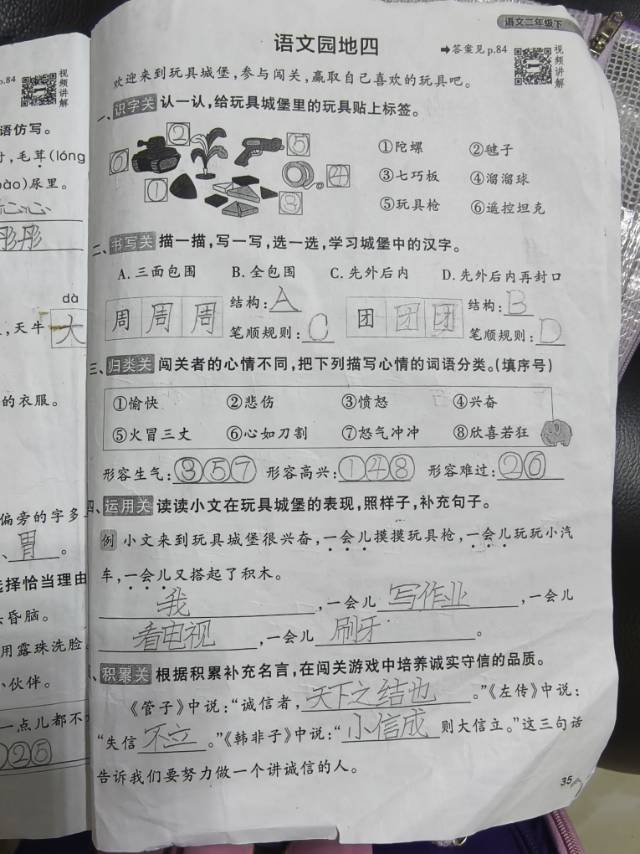 语文二年级下
语文园地四
➡答案见p.84
视频讲解
欢迎来到玩具城堡,参与闯关,赢取自己喜欢的玩具吧。
一、识字关 认一认,给玩具城堡里的玩具贴上标签。
⑥ ② ⑤
① ③ ④
①陀螺 ②毽子
③七巧板 ④溜溜球
⑤玩具枪 ⑥遥控坦克
二、书写关 描一描,写一写,选一选,学习城堡中的汉字。
A.三面包围 B.全包围 C.先外后内 D.先外后内再封口
周 周 周 结构:A 团 团 团 结构:B
笔顺规则:C 笔顺规则:D
三、归类关 闯关者的心情不同,把下列描写心情的词语分类。(填序号)
①愉快 ②悲伤 ③愤怒 ④兴奋
⑤火冒三丈 ⑥心如刀割 ⑦怒气冲冲 ⑧欣喜若狂
形容生气:③⑤⑦ 形容高兴:①④⑧ 形容难过:②⑥
四、运用关 读读小文在玩具城堡的表现,照样子,补充句子。
例 小文来到玩具城堡很兴奋,一会儿摸摸玩具枪,一会儿玩玩小汽
车,一会儿又搭起了积木。
我,一会儿写作业,一会儿
看电视,一会儿刷牙。
、积累关 根据积累补充名言,在闯关游戏中培养诚实守信的品质。
《管子》中说:“诚信者,天下之结也。”《左传》中说:
“失信不立。”《韩非子》中说:“小信成则大信立。”这三句话
告诉我们要努力做一个讲诚信的人。
35
p.84
视频讲解
语仿写。
,毛茸(lóng
ào)尿里。
彤彤
dà
,天牛大
的衣服。
偏旁的字多
、胃。
选择恰当理由
昏脑。
用露珠洗脸
小伙伴。
一点儿都不
②⑤